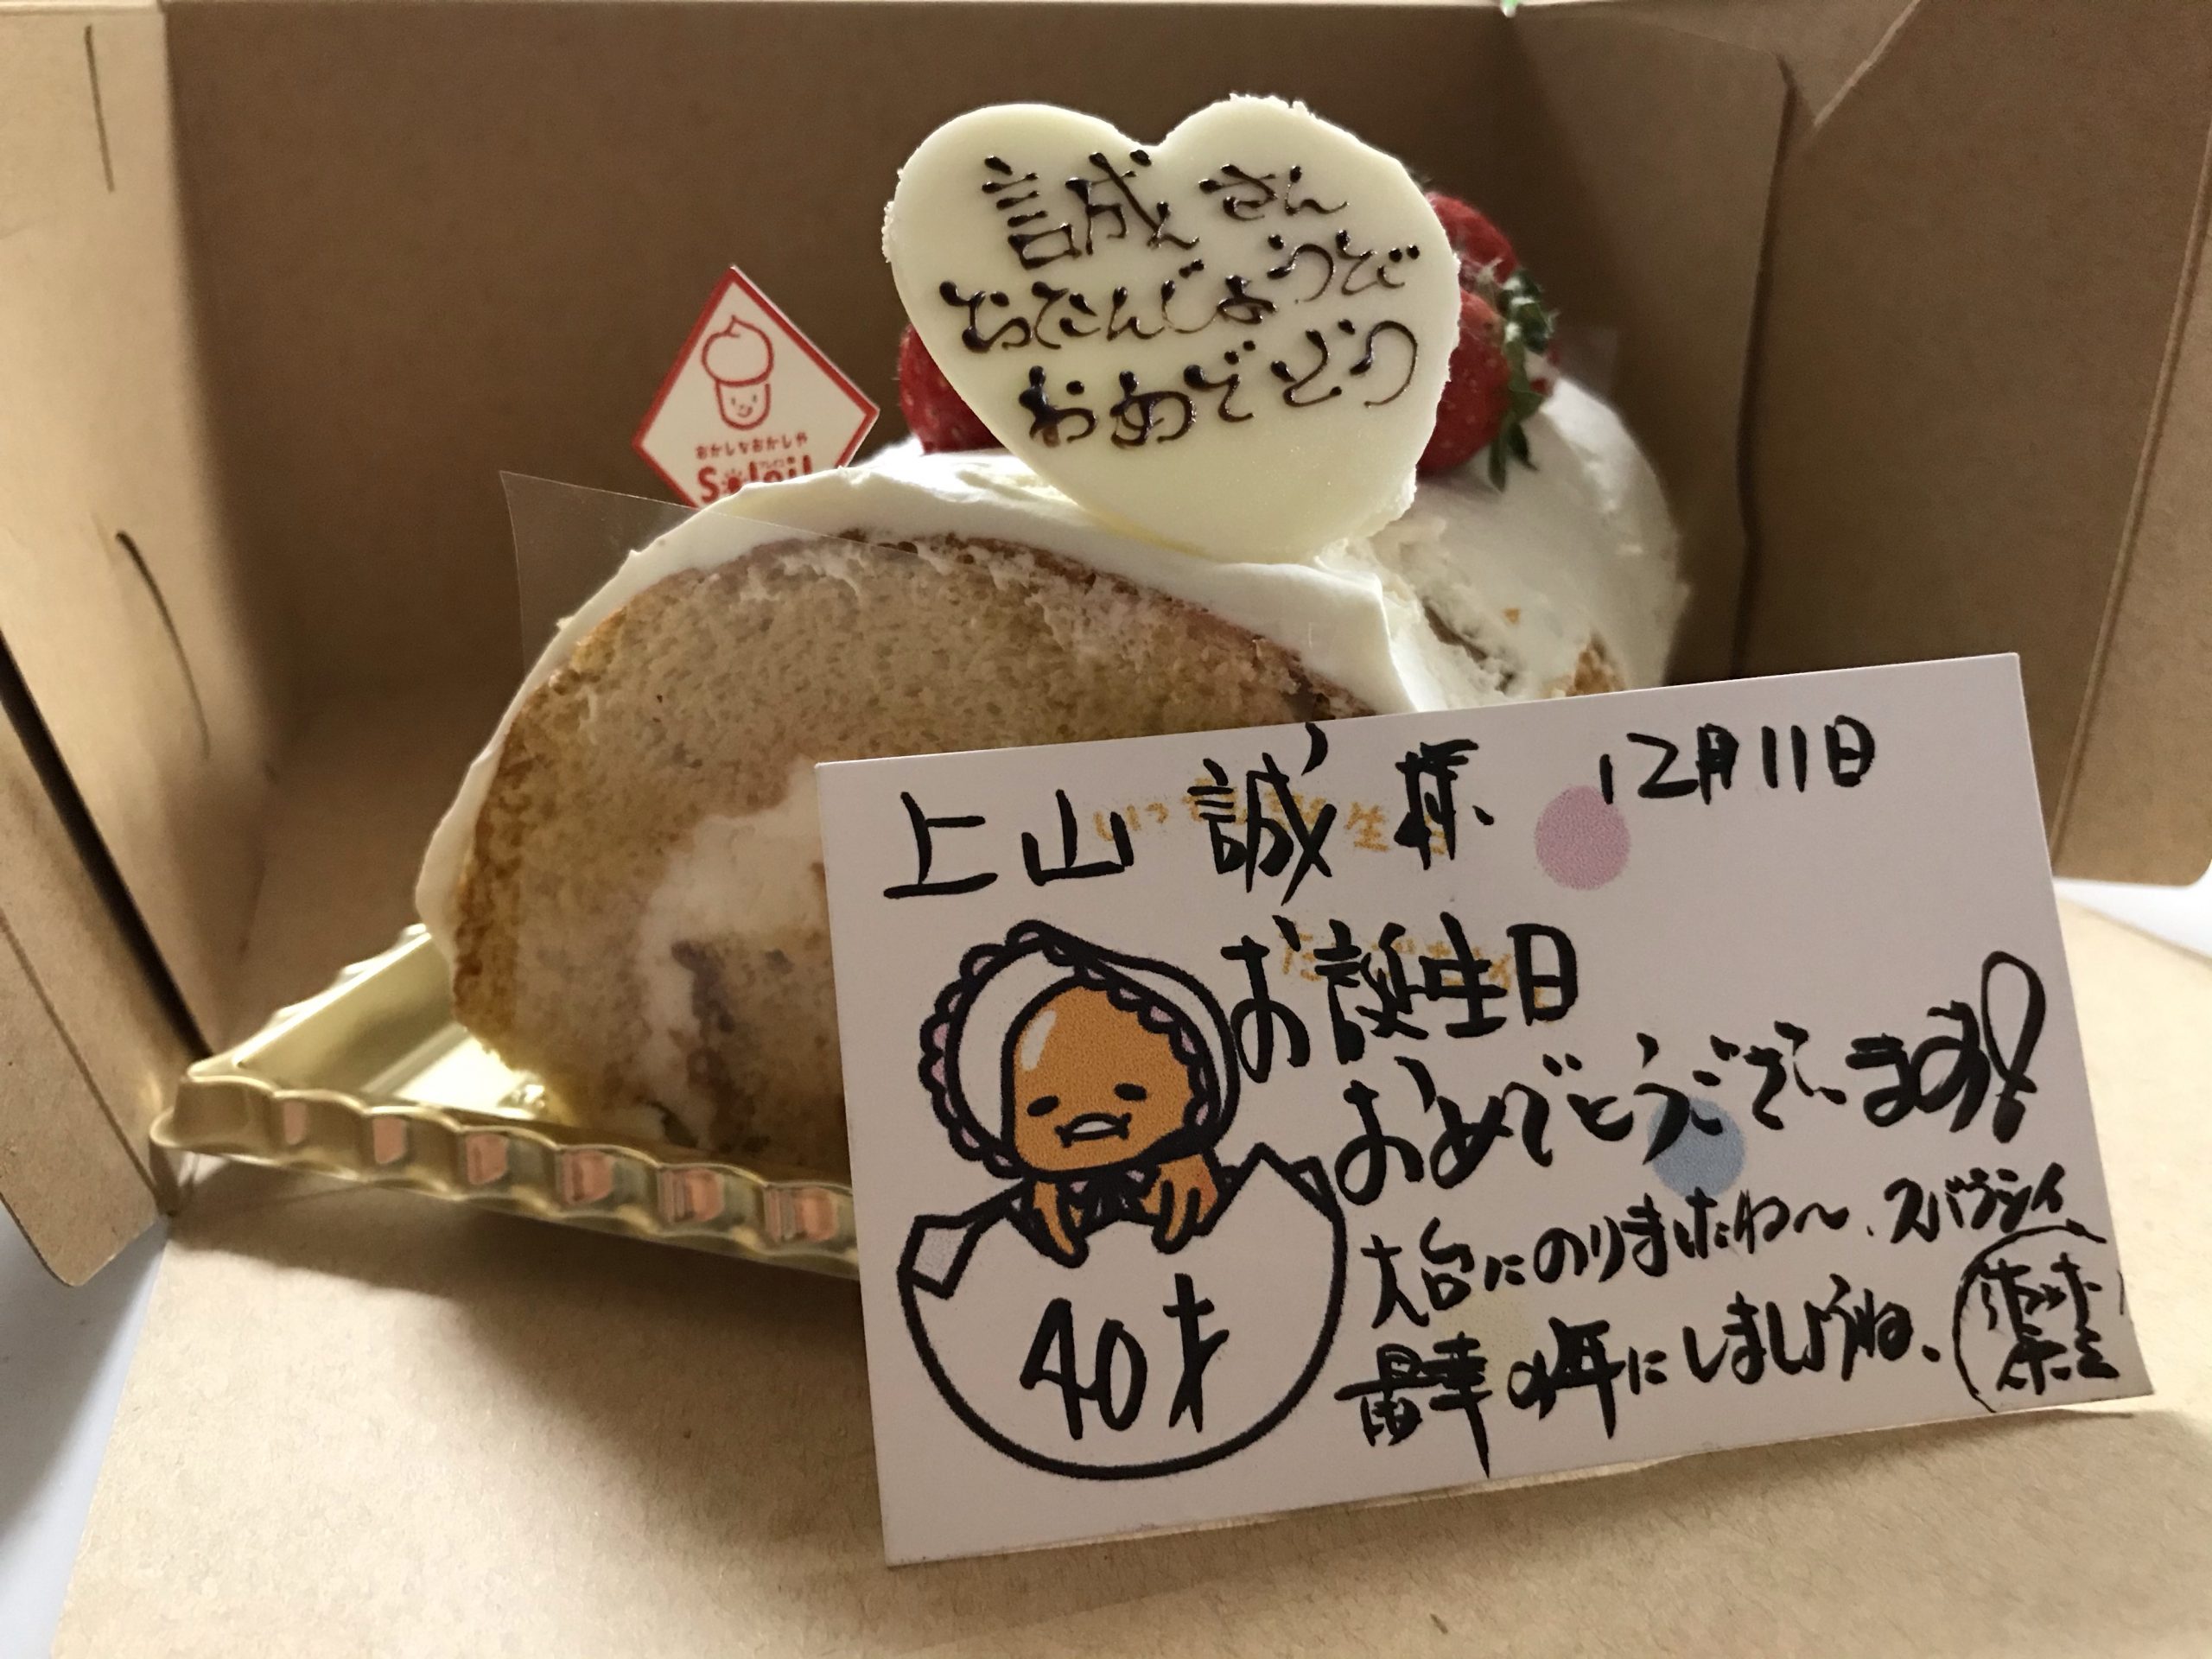 誠さん
おたんじょうび
おめでとう
おかしなおかしや
Soleil
上山 誠 様 12月11日
お誕生日
おめでとうございます!
大台にのりましたね～、スバラシイ
最幸の年にしましょうね、
40才